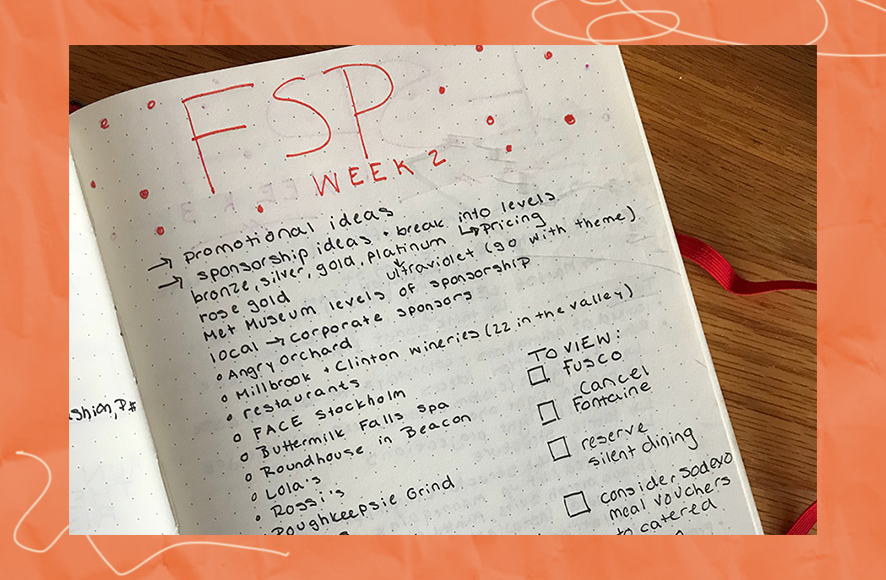 FSP
WEEK 2
→ promotional ideas
→ sponsorship ideas + break into levels
bronze, silver, gold, platinum ↳ pricing
rose gold ultraviolet (go with theme)
Met Museum levels of sponsorship
local → corporate sponsors
o Angry Orchard
o Millbrook + Clinton wineries (22 in the valley)
o restaurants
o FACE Stockholm
o Buttermilk Falls Spa
o Roundhouse in Beacon
o Lola's
o Rossi's
Poughkeepsie Grind
TO VIEW:
☐ Fusco
cancel
☐ Fontaine
☐ reserve
silent dining
☐ consider sodexo
meal vouchers
to catered